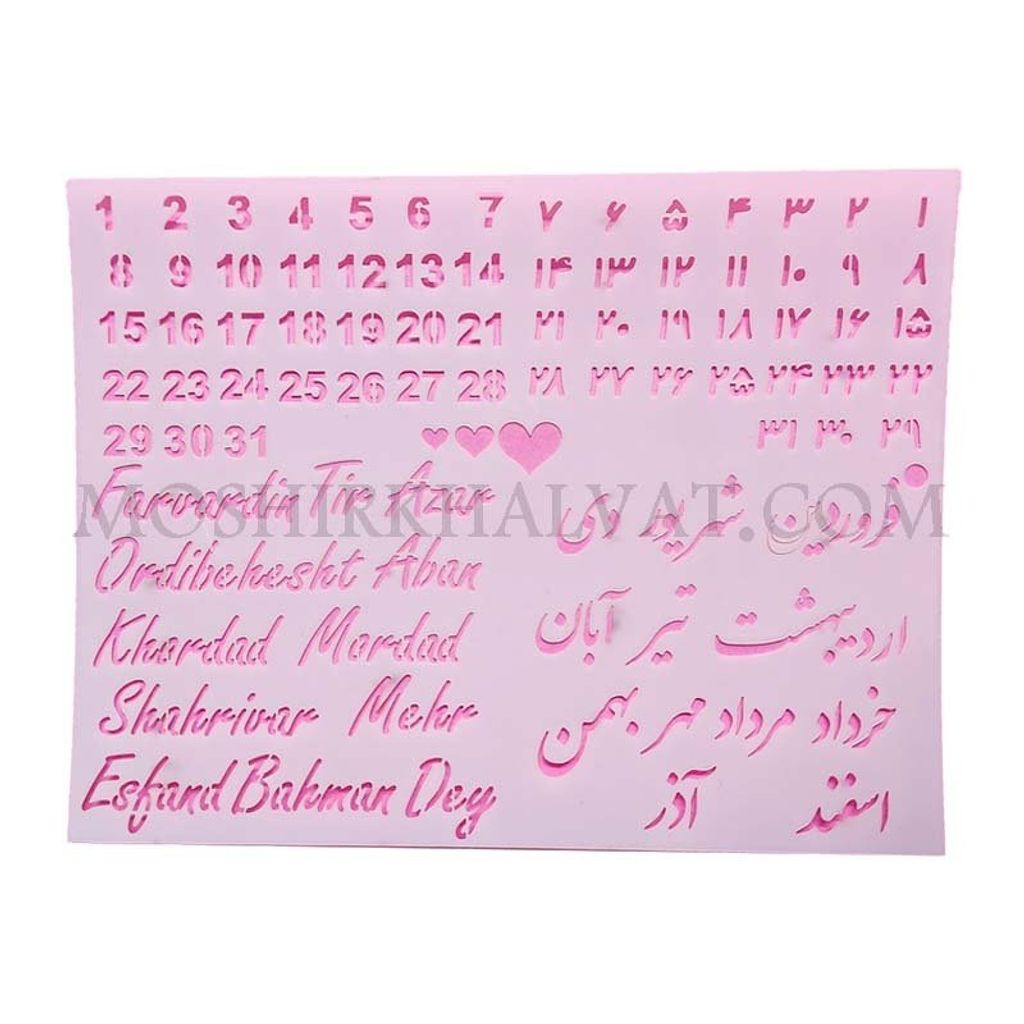 1 2 3 4 5 6 7
8 9 10 11 12 13 14
15 16 17 18 19 20 21
22 23 24 25 26 27 28
29 30 31
Farvardin Tir Azar
Ordibehesht Aban
Khordad Mordad
Shahrivar Mehr
Esfand Bahman Dey
۱ ۲ ۳ ۴ ۵ ۶ ۷
۸ ۹ ۱۰ ۱۱ ۱۲ ۱۳ ۱۴
۱۵ ۱۶ ۱۷ ۱۸ ۱۹ ۲۰ ۲۱
۲۲ ۲۳ ۲۴ ۲۵ ۲۶ ۲۷ ۲۸
۲۹ ۳۰ ۳۱
فروردین شهریور دی
اردیبهشت تیر آبان
خرداد مرداد مهر بهمن
اسفند آذر
MOSHIRKHALVAT.COM